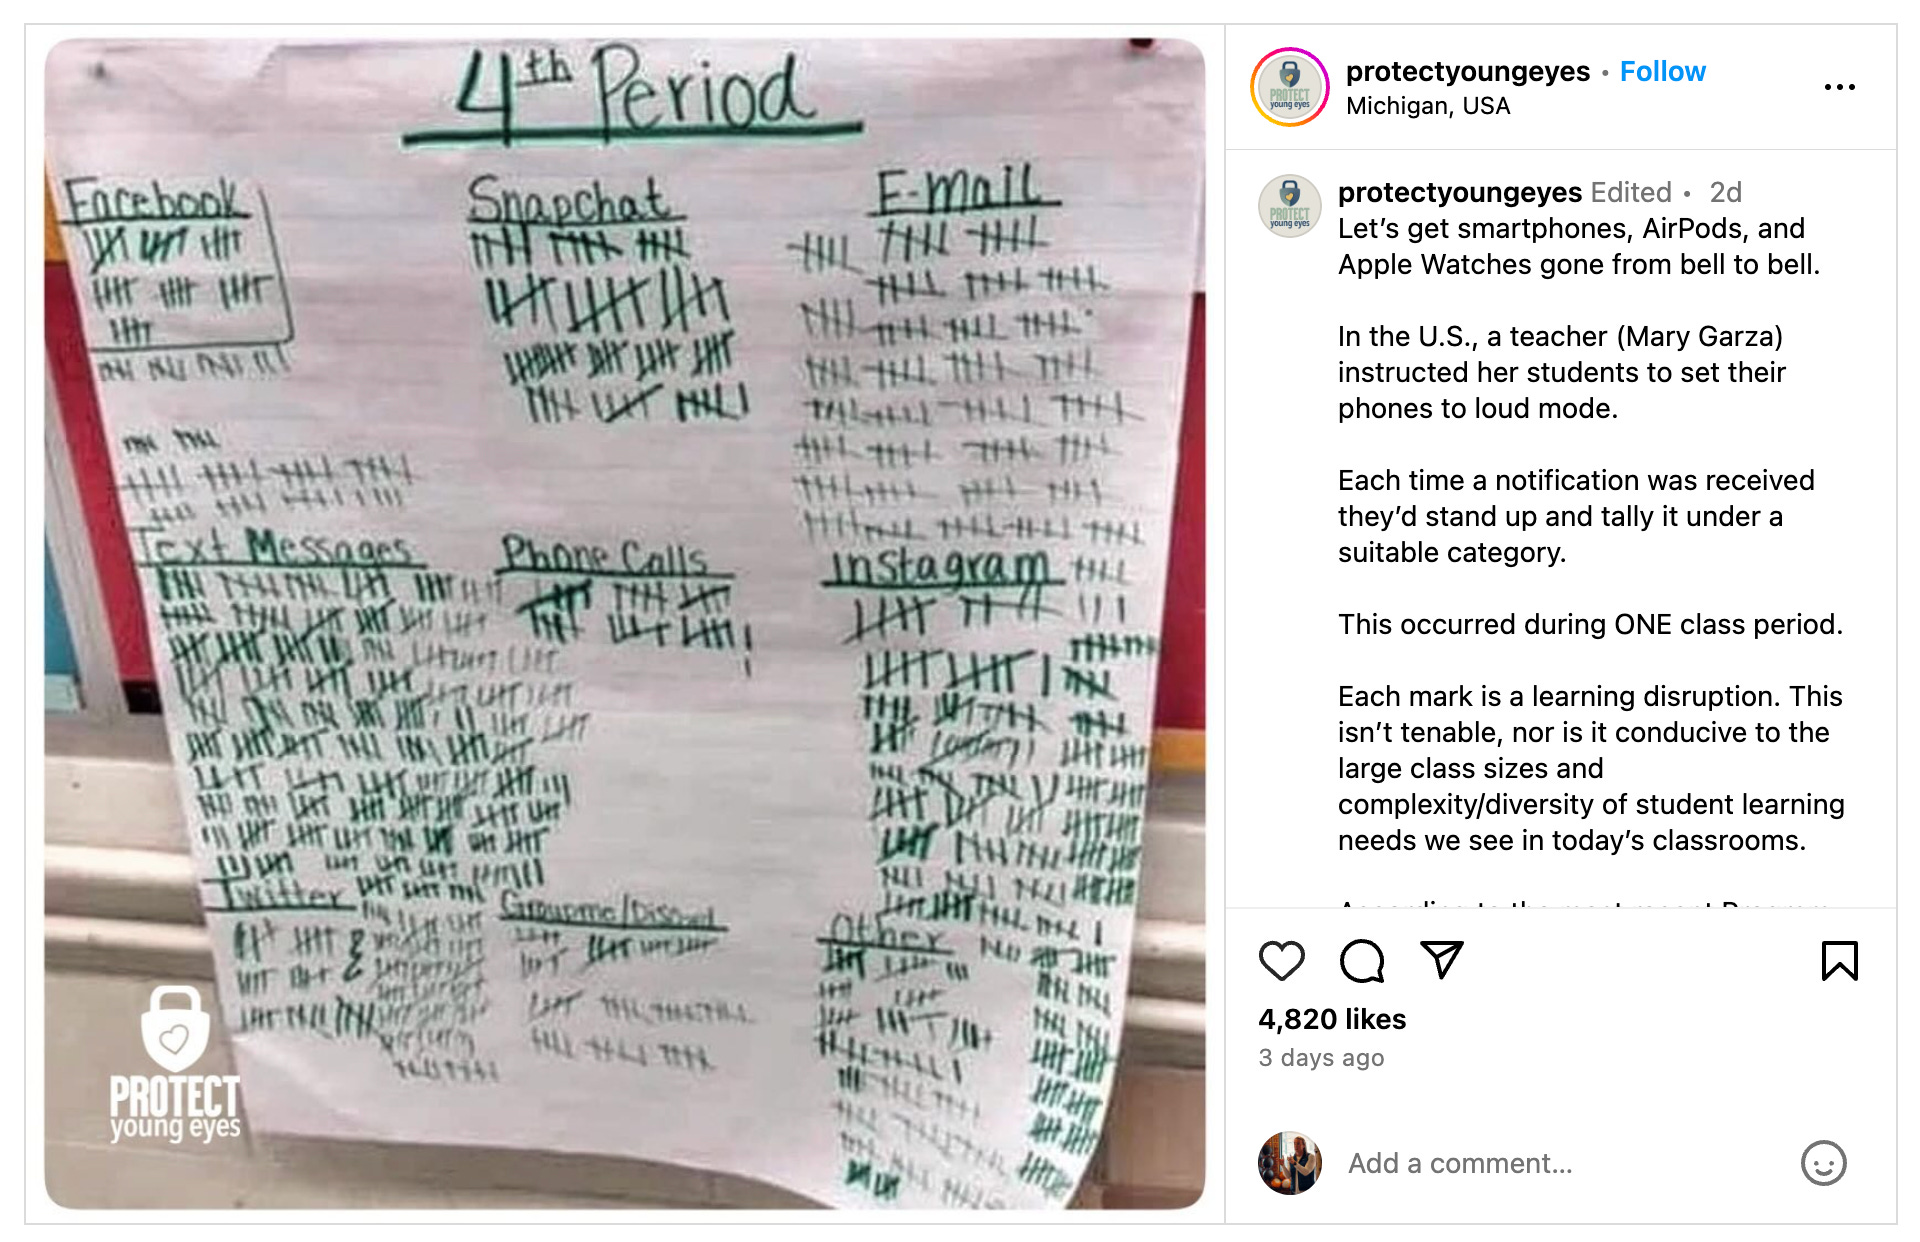 4th Period
Facebook
Snapchat
E-mail
Text Messages
Phone Calls
Instagram
Twitter
Groupme/Discord
Other
PROTECT
young eyes
PROTECT
young eyes
protectyoungeyes • Follow
Michigan, USA
PROTECT
young eyes
protectyoungeyes Edited • 2d
Let’s get smartphones, AirPods, and
Apple Watches gone from bell to bell.
In the U.S., a teacher (Mary Garza)
instructed her students to set their
phones to loud mode.
Each time a notification was received
they’d stand up and tally it under a
suitable category.
This occurred during ONE class period.
Each mark is a learning disruption. This
isn’t tenable, nor is it conducive to the
large class sizes and
complexity/diversity of student learning
needs we see in today’s classrooms.
4,820 likes
3 days ago
Add a comment...